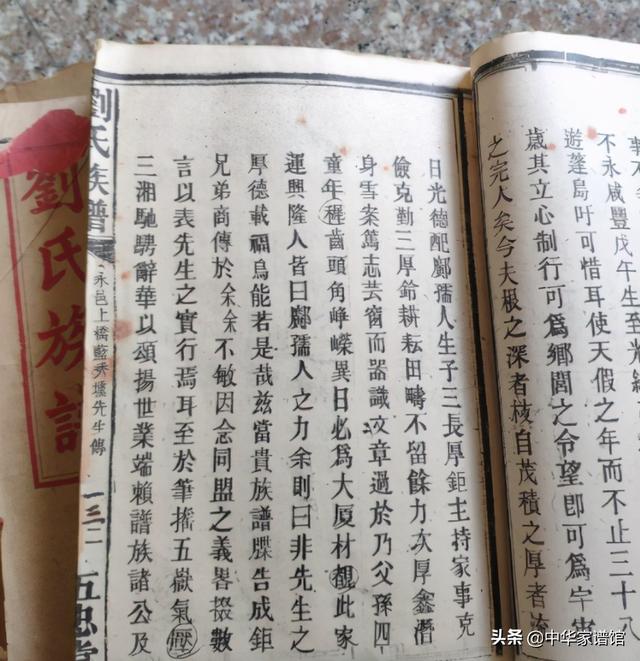 不永咸豐戊午生至光緒
遊蓬島吁可惜耳使天假之年而不止三十八
歲其立心制行可為鄉閭之令望即可為宇宙
之完人矣今夫根之深者枝自茂積之厚者
日光德配鄺孺人生子三長厚鉅主持家事克
儉克勤三厚鈴耕耘田疇不留餘力次厚鑫潛
身雪案篤志芸窗而器識文章過於乃父孫四
童年穉齒頭角崢嶸異日必為大厦材觀此家
運興隆人皆曰鄺孺人之力余則曰非先生之
厚德載福烏能若是哉兹當貴族譜牒告成鉅
兄弟商傳於余余不敏因念同盟之義畧掇數
言以表先生之實行焉耳至於筆搖五嶽氣壓
三湘馳騁辭華以頌揚世業端賴譜族諸公及
劉氏族譜
永邑上橋藍秀墟先生傳
一三二
五忠
劉氏族譜
头条 @中华家谱馆